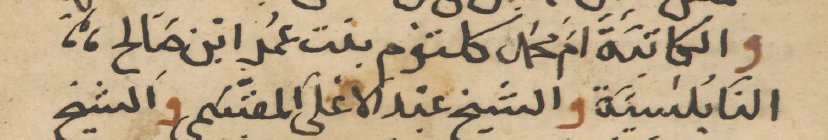 و الكاتبة ام محمد كلثوم بنت عمر ابن صالح
النابلسية و الشيخ عبد الاعلى المقسمي و الشيخ